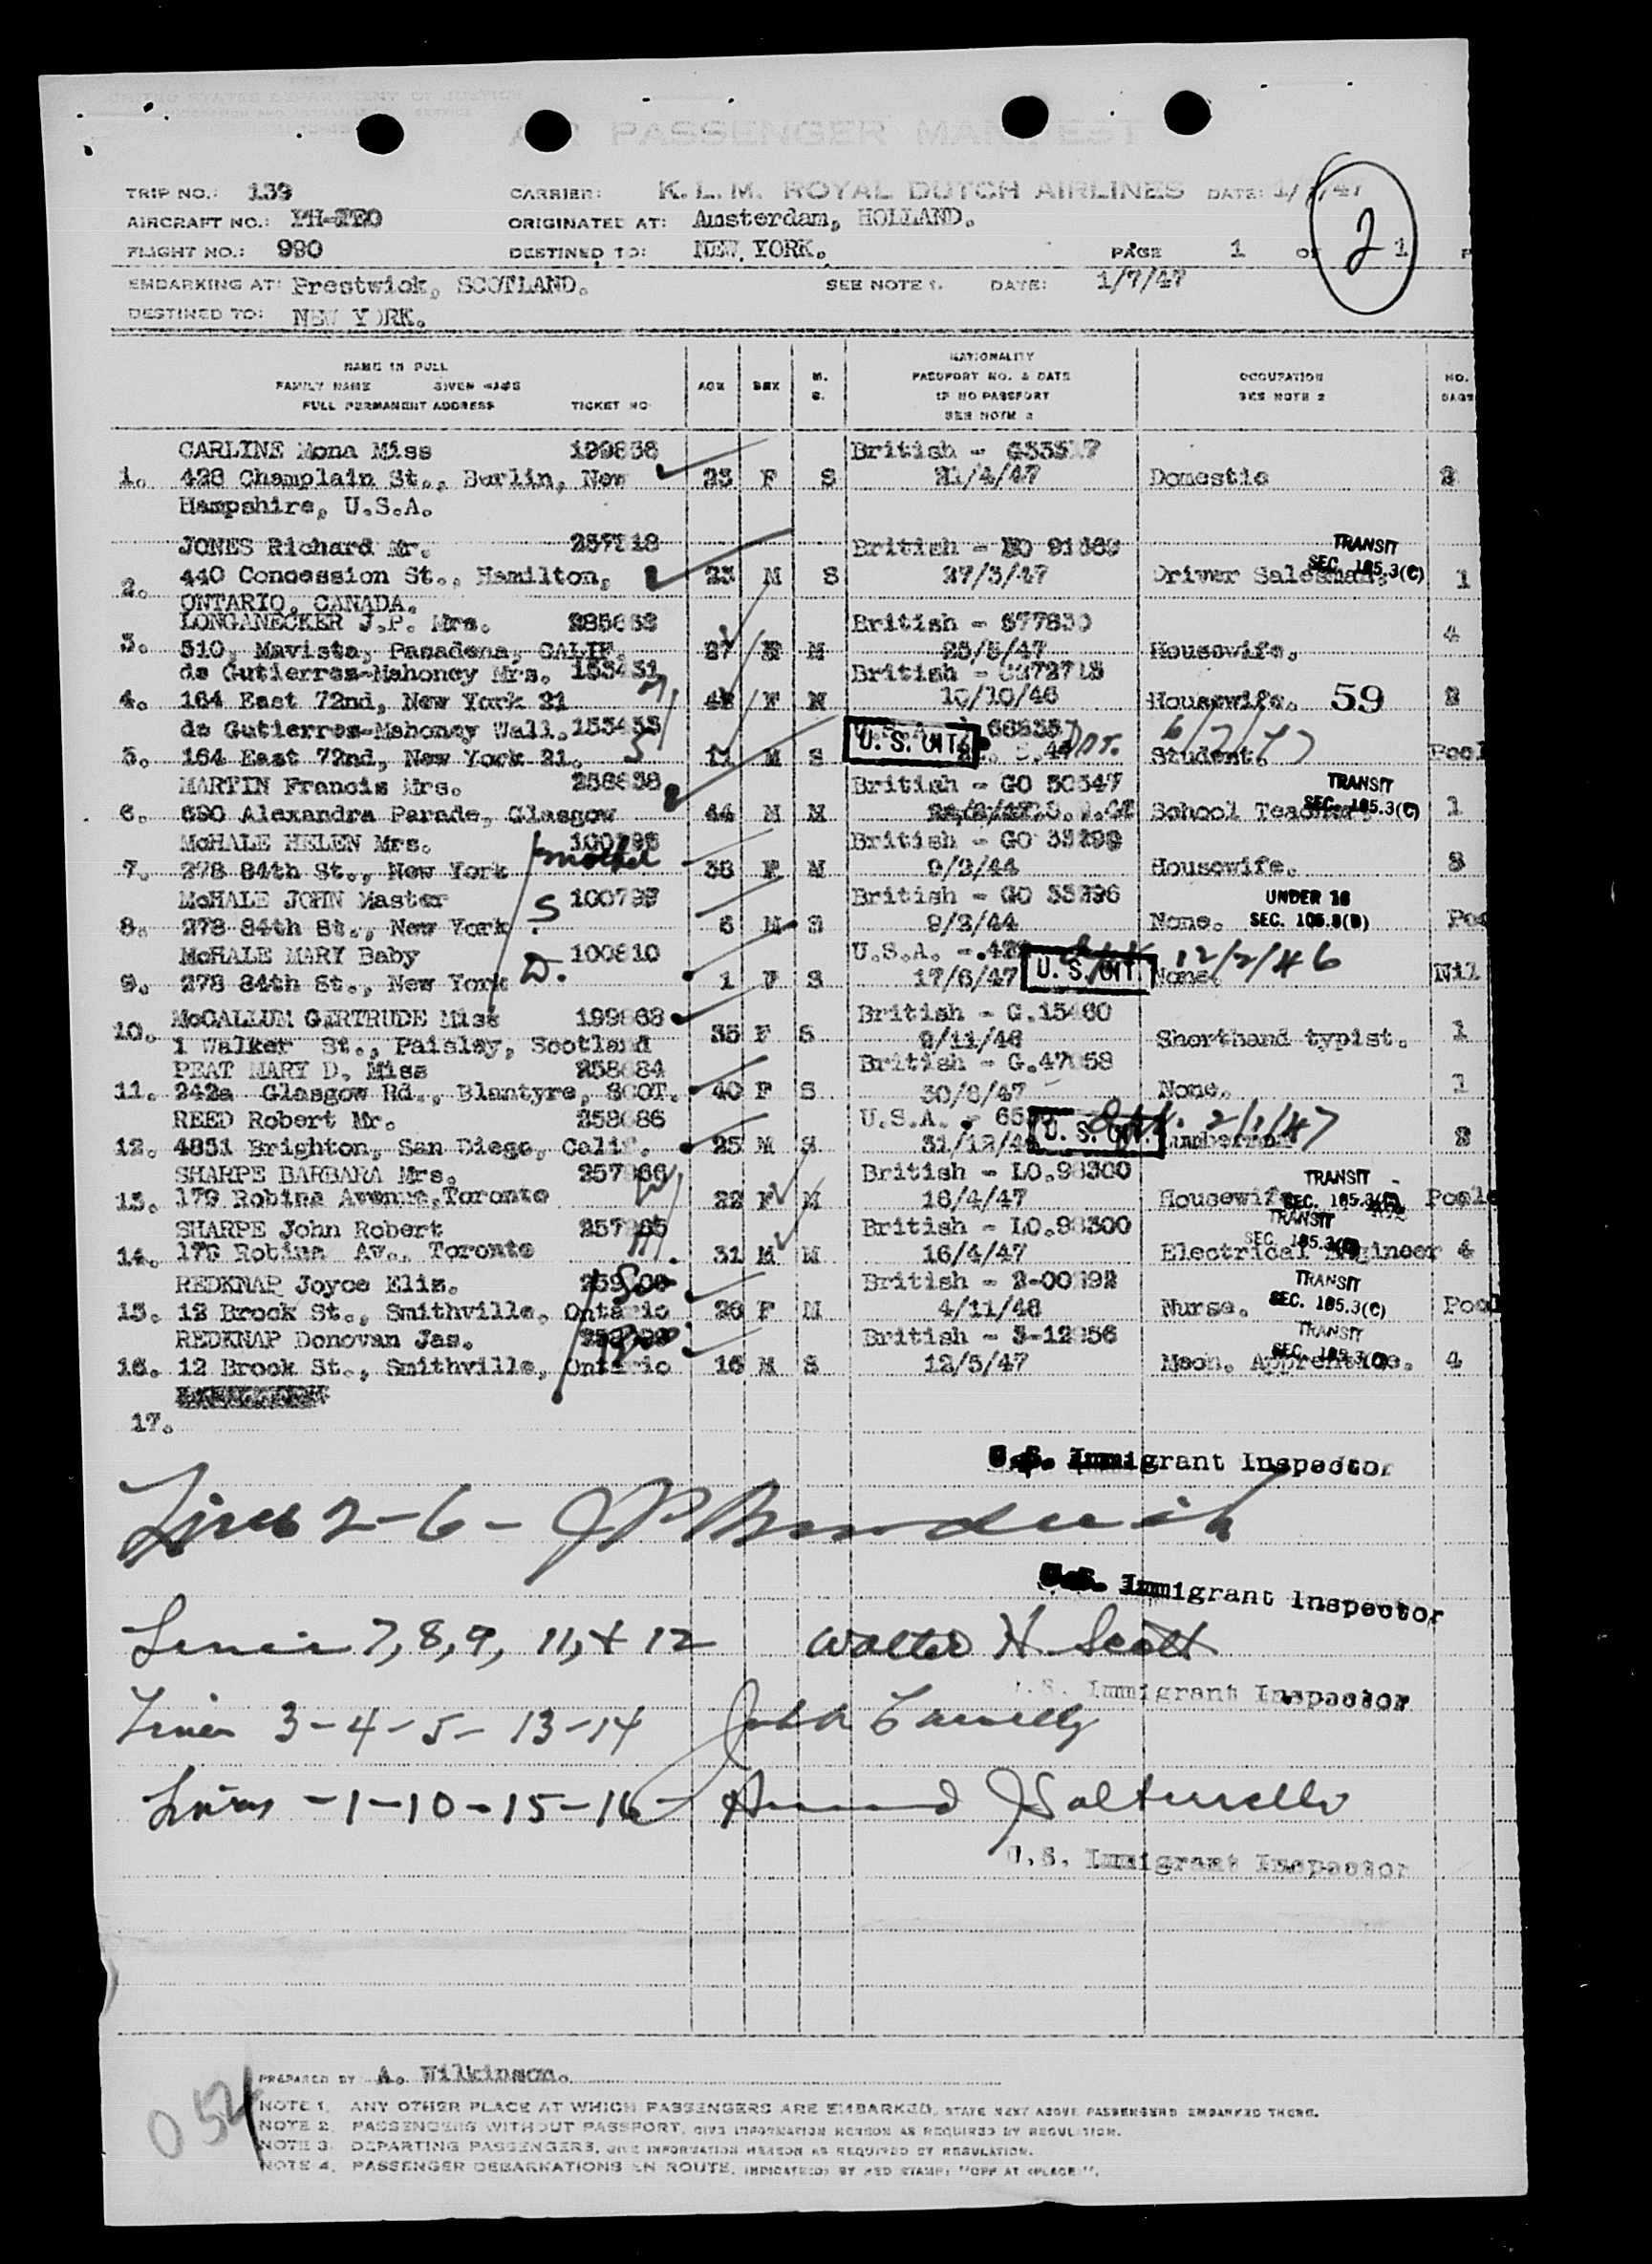 UNITED STATES DEPARTMENT OF JUSTICE
AIR PASSENGER MANIFEST
TRIP NO.: 139 CARRIER: K.L.M. ROYAL DUTCH AIRLINES DATE: 1/7/47
AIRCRAFT NO.: ORIGINATED AT: Amsterdam, HOLLAND.
FLIGHT NO.: 990 DESTINED TO: NEW YORK. PAGE 1 OF 1
2
EMBARKING AT: Prestwick, SCOTLAND. SEE NOTE 1. DATE: 1/7/47
DESTINED TO: NEW YORK.
NAME IN FULL
FAMILY NAME GIVEN NAME
FULL PERMANENT ADDRESS TICKET NO
AGE SEX M. S.
NATIONALITY
PASSPORT NO. & DATE
IF NO PASSPORT
SEE NOTE 2
OCCUPATION
SEE NOTE 2
NO. BAGS
CARLINE Mona Miss 199836 British -
1. 428 Champlain St., Berlin, New 23 F S 21/4/47 Domestic 2
Hampshire, U.S.A.
JONES Richard Mr. British - TRANSIT
2. 440 Concession St., Hamilton, 23 M S 27/3/47 Driver Salesman. SEC. 105.3(C) 1
ONTARIO, CANADA.
LONGANECKER J.P. Mrs. British - 4
3. 510, Mavista, Pasadena, CALIF. 27 M Housewife.
de Gutierrez-Mahoney Mrs. 153431 British -
4. 164 East 72nd, New York 21 F M 10/10/46 Housewife. 59 2
de Gutierrez-Mahoney Wall. 153433 U. S. CIT. 6/7/47
5. 164 East 72nd, New York 21. S 11 M S Student. Pool
MARTIN Francis Mrs. British - GO 50547 TRANSIT
6. 690 Alexandra Parade, Glasgow 44 M M School Teacher SEC. 105.3(C) 1
McHALE HELEN Mrs. British - GO
7. 278 84th St., New York mother 38 F M 9/2/44 Housewife. 3
McHALE JOHN Master S British - GO UNDER 16
8. 278 84th St., New York. 6 M S 9/2/44 None. SEC. 105.8(B)
McHALE MARY Baby D. 100810 U.S.A. - 12/2/46
9. 278 84th St., New York 1 F S 17/6/47 U. S. CIT. None. Nil
McCALLUM GERTRUDE Miss British -
10. 1 Walker St., Paisley, Scotland 35 F S 9/11/46 Shorthand typist. 1
PEAT MARY D. Miss British -
11. 242a Glasgow Rd., Blantyre, SCOT. 40 F S 30/6/47 None. 1
REED Robert Mr. U.S.A. - 2/1/47
12. 4851 Brighton, San Diego, Calif. 25 M S U. S. CIT. 2
SHARPE BARBARA Mrs. British - LO.98300 TRANSIT
13. 179 Robina Avenue, Toronto W 22 F M 16/4/47 Housewife SEC. 105.3(C) Pool
SHARPE John Robert British - LO.98300 TRANSIT
14. 179 Robina Av., Toronto 31 M M 16/4/47 Electrical Engineer SEC. 105.3(C) 4
REDKNAP Joyce Eliz. British - TRANSIT
15. 12 Brock St., Smithville, Ontario 26 F M 4/11/46 Nurse. SEC. 105.3(C) Pool
REDKNAP Donovan Jas. British - TRANSIT
16. 12 Brock St., Smithville, Ontario 16 M S 12/5/47 Mech. Apprentice. SEC. 105.3(C) 4
17.
U.S. Immigrant Inspector
Lines 2-6 -
U.S. Immigrant Inspector
Lines 7, 8, 9, 11, & 12 Walter H. Scott
U.S. Immigrant Inspector
Lines 3-4-5-13-14 John
Lines -1-10-15-16
U.S. Immigrant Inspector
PREPARED BY A. Wilkinson.
054
NOTE 1. ANY OTHER PLACE AT WHICH PASSENGERS ARE EMBARKED, STATE NEXT ABOVE PASSENGERS EMBARKED THERE.
NOTE 2. PASSENGERS WITHOUT PASSPORT, GIVE INFORMATION HEREON AS REQUIRED BY REGULATION.
NOTE 3. DEPARTING PASSENGERS, GIVE INFORMATION HEREON AS REQUIRED BY REGULATION.
NOTE 4. PASSENGER DEBARKATIONS EN ROUTE, INDICATE(D) BY RED STAMP: "OFF AT (PLACE)".